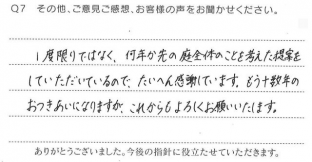 Q7 その他、ご意見ご感想、お客様の声をお聞かせください。
1度限りではなく、何年か先の庭全体のことを考えた提案を
していただいているので、たいへん感謝しています。もう十数年の
おつきあいになりますが、これからもよろしくお願いいたします。
ありがとうございました。今後の指針に役立たせていただきます。